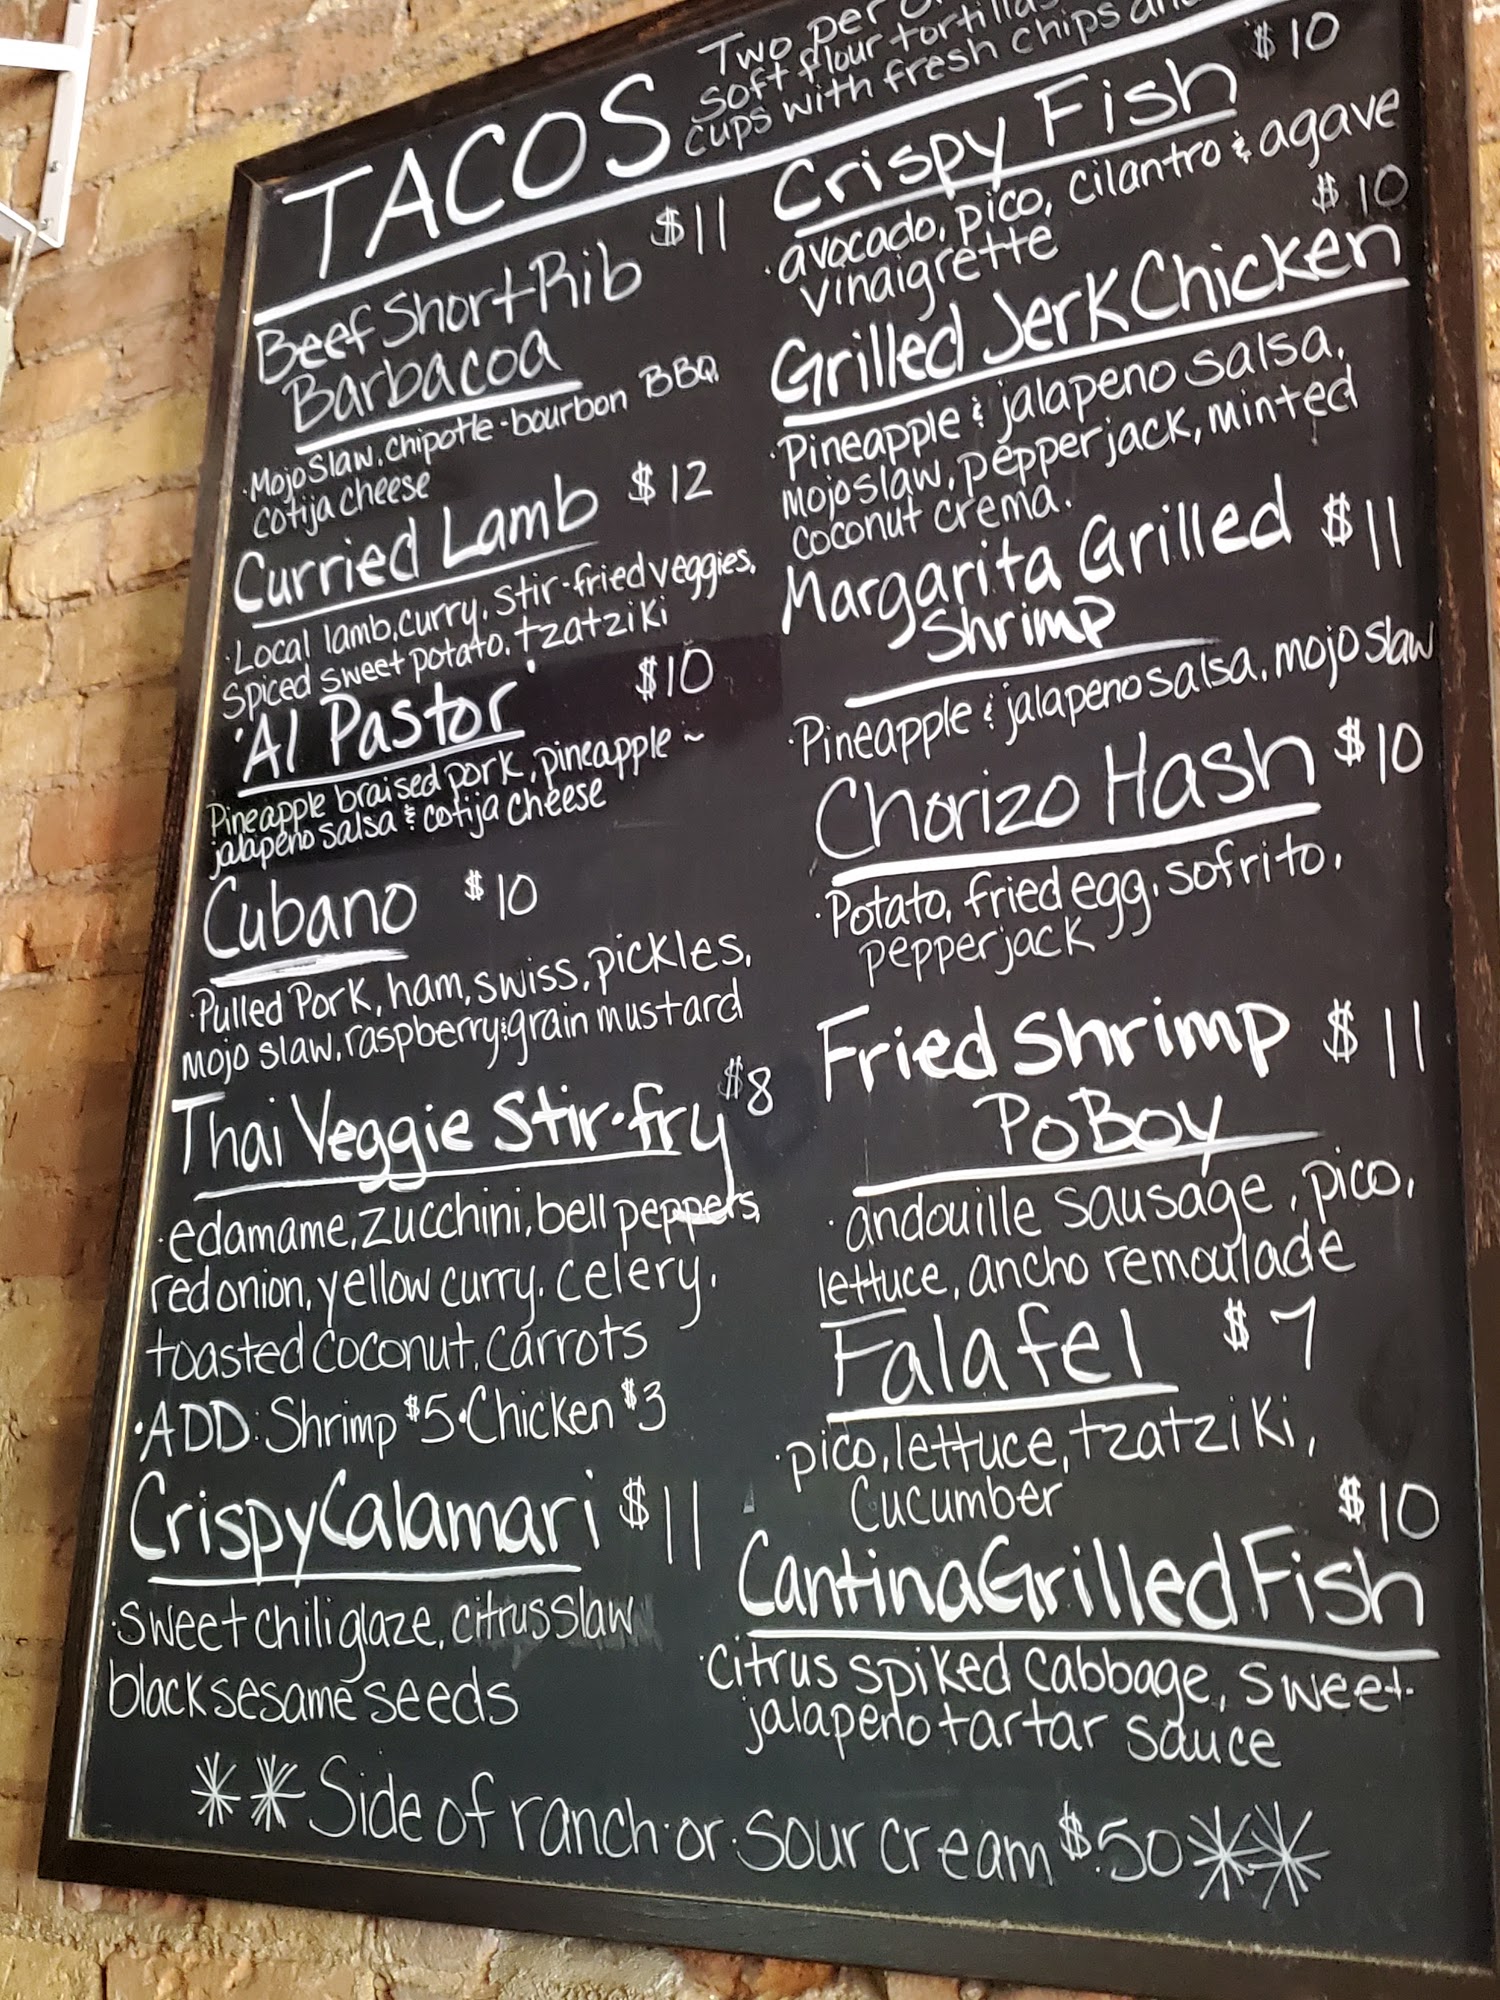 TACOS
Two per
soft flour tortillas
cups with fresh chips
Beef Short Rib $11
Barbacoa
·Mojo Slaw, chipotle-bourbon BBQ,
cotija cheese
Curried Lamb $12
·Local lamb, curry, stir-fried veggies,
Spiced sweet potato, tzatziki
'Al Pastor' $10
Pineapple braised pork, pineapple ~
jalapeno salsa & cotija cheese
Cubano $10
·Pulled Pork, ham, swiss, pickles,
mojo slaw, raspberry & grain mustard
Thai Veggie Stir-fry $8
·edamame, zucchini, bell peppers,
red onion, yellow curry, celery,
toasted coconut, carrots
·ADD: Shrimp $5 · Chicken $3
Crispy Calamari $11
·sweet chili glaze, citrus slaw
black sesame seeds
Crispy Fish $10
·avocado, pico, cilantro & agave
vinaigrette
Grilled Jerk Chicken $10
·Pineapple & jalapeno salsa,
mojo slaw, pepperjack, minted
coconut crema.
Margarita Grilled $11
Shrimp
·Pineapple & jalapeno salsa, mojo slaw
Chorizo Hash $10
·Potato, fried egg, sofrito,
pepperjack
Fried Shrimp $11
PoBoy
·andouille sausage, pico,
lettuce, ancho remoulade
Falafel $7
·pico, lettuce, tzatziki,
cucumber
Cantina Grilled Fish $10
·citrus spiked cabbage, sweet-
jalapeno tartar sauce
**Side of ranch·or·sour cream $.50**